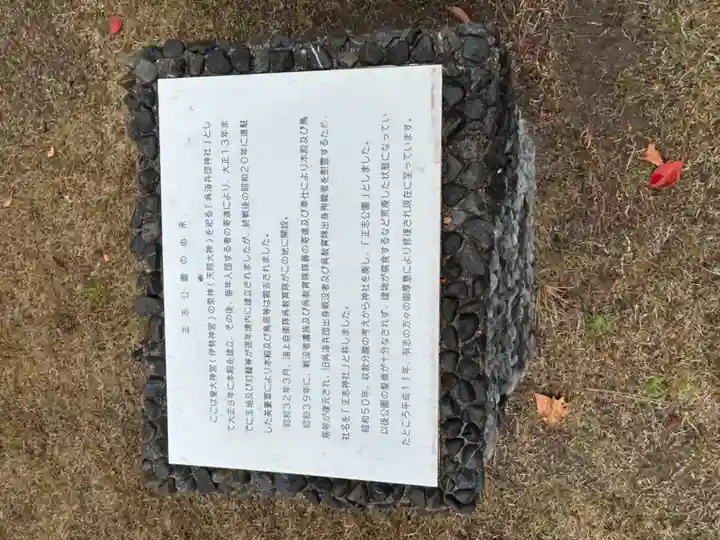 正志公園の由来
ここは皇大神宮（伊勢神宮）の祭神（天照大神）を祀る「呉海兵団神社」とし
て大正８年に本殿を建立、その後、毎年入団する者の寄進により、大正１３年ま
でに玉垣及び灯籠等が逐年境内に建立されましたが、終戦後の昭和２０年に進駐
した英豪軍により本殿及び鳥居等は撤去されました。
昭和３２年３月、海上自衛隊呉教育隊がこの地に開設。
昭和３９年に、戦没者遺族及び呉教育隊隊員の寄進及び奉仕により本殿及び鳥
居等が復元され、旧呉海兵団出身戦没者及び呉教育隊出身殉職者を慰霊するため、
社名を「正志神社」と称しました。
昭和５０年、政教分離の考えから神社を廃し、「正志公園」としました。
以後公園の整備が十分なされず、建物が腐食するなど荒廃した状態になってい
たところ平成１１年、有志の方々の御厚意により修復され現在に至っています。